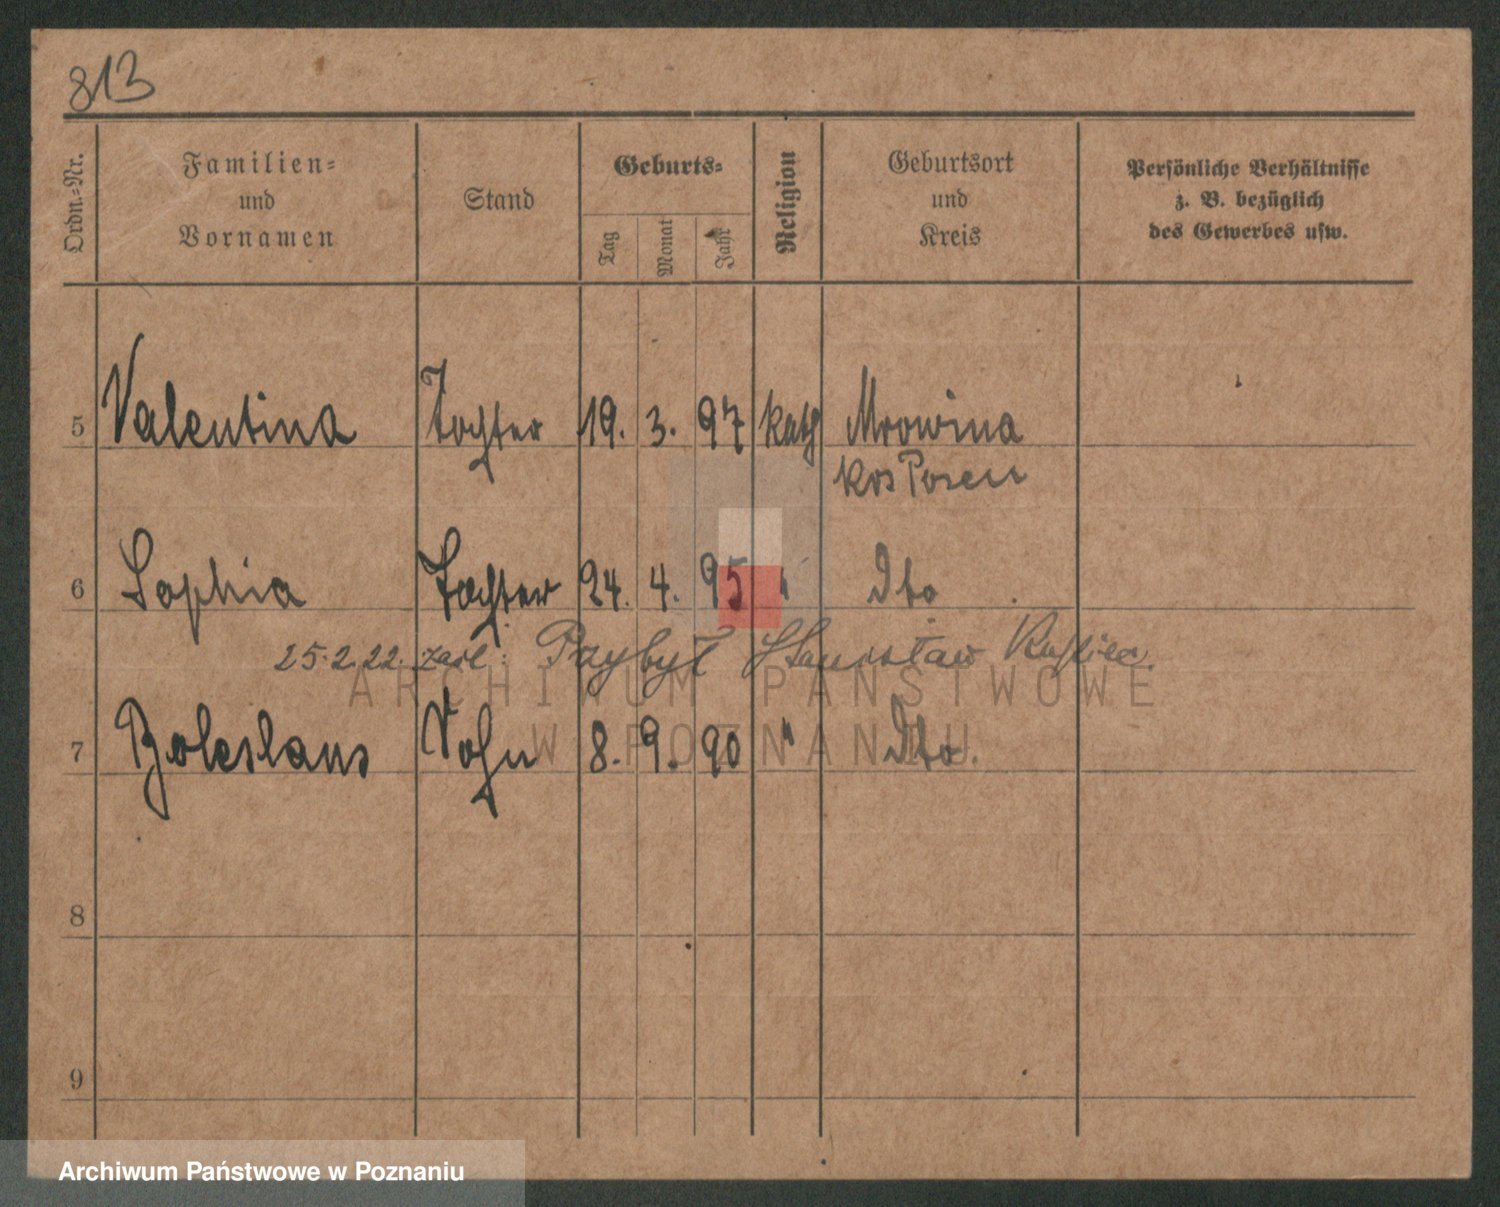 813
Ordn.-Nr.
Familien-
und
Vornamen
Stand
Geburts-
Tag
Monat
Jahr
Religion
Geburtsort
und
Kreis
Persönliche Verhältnisse
z. B. bezüglich
des Gewerbes usw.
5 Valentina Tochter 19. 3. 97 kath Mrowina
Krs Posen
6 Sophia Tochter 24. 4. 95 " Dto
25.2.22. Przybył Stanisław
7 Boleslaus Sohn 8. 9. 90 " Dto.
8
9
ARCHIWUM PAŃSTWOWE
W POZNANIU
Archiwum Państwowe w Poznaniu